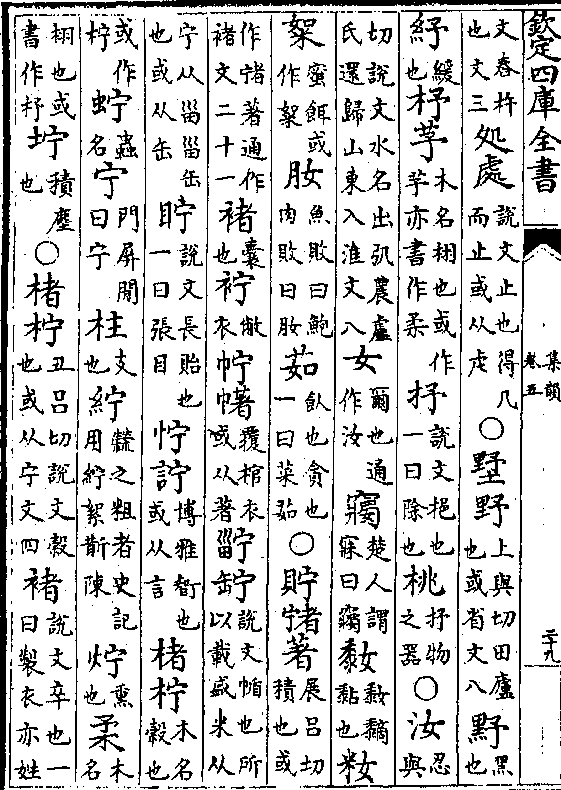 欽定四庫全書
集韻
卷五
二十九
文舂杵也文三処處說文止也得几而止或从虍○墅野上與切田廬也或省文八黑也
紓緩也杼芧木名栩也或作芧亦書作柔抒說文挹也一曰除也桃抒物之器○汝忍與
切說文水名出弘農盧氏還歸山東入淮文八女爾也通作汝楚人謂寐曰黏也籹
絮蜜餌或作絮肗魚敗曰鮑肉敗曰肗茹飲也貪也一曰菜茹○貯著展呂切積也或
作著通作褚文二十一褚囊也敝衣覆棺衣或从著說文也所以載盛米从
宁从甾甾缶也或从缶眝說文長眙也一曰張目詝博雅智也或从言楮柠木名榖也
或作柠蟲名宁門屏間曰宁柱支也紵之粗者史記用紵絮斮陳熏也柔木名
栩也或書作杼坾積塵也○楮柠丑呂切說文榖也或从宁文四褚說文卒也一曰製衣亦姓